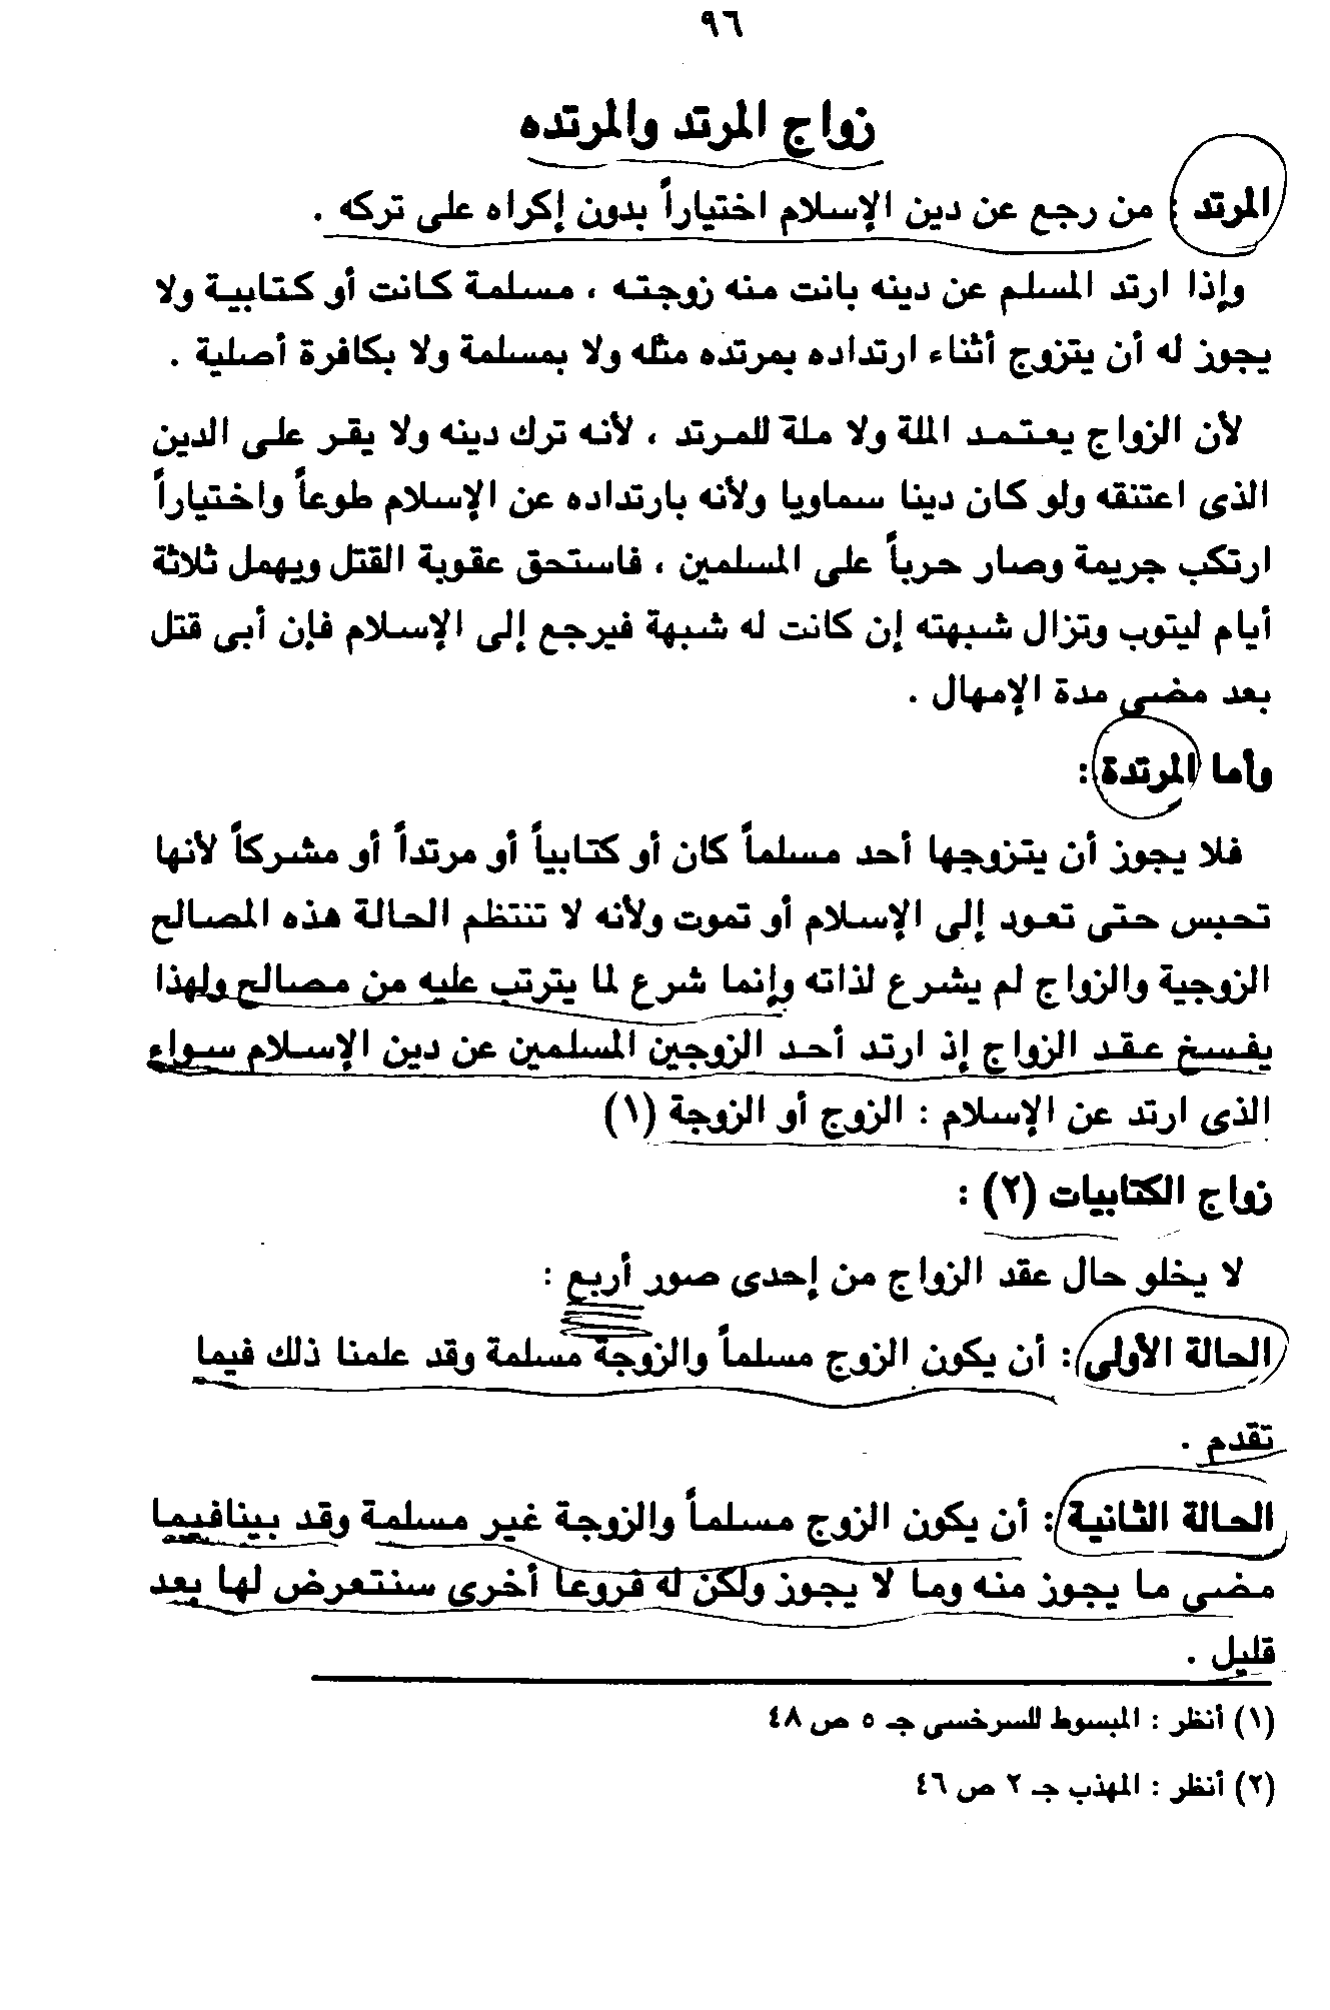 ٩٦
زواج المرتد والمرتده
المرتد : من رجع عن دين الإسلام اختياراً بدون إكراه على تركه .
وإذا ارتد المسلم عن دينه بانت منه زوجته ، مسلمة كانت أو كتابية ولا
يجوز له أن يتزوج أثناء ارتداده بمرتده مثله ولا بمسلمة ولا بكافرة أصلية .
لأن الزواج يعتمد الملة ولا ملة للمرتد ، لأنه ترك دينه ولا يقر على الدين
الذى اعتنقه ولو كان دينا سماويا ولأنه بارتداده عن الإسلام طوعاً واختياراً
ارتكب جريمة وصار حرباً على المسلمين ، فاستحق عقوبة القتل ويهمل ثلاثة
أيام ليتوب وتزال شبهته إن كانت له شبهة فيرجع إلى الإسلام فإن أبى قتل
بعد مضى مدة الإمهال .
وأما المرتدة :
فلا يجوز أن يتزوجها أحد مسلماً كان أو كتابياً أو مرتداً أو مشركاً لأنها
تحبس حتى تعود إلى الإسلام أو تموت ولأنه لا تنتظم الحالة هذه المصالح
الزوجية والزواج لم يشرع لذاته وإنما شرع لما يترتب عليه من مصالح ولهذا
يفسخ عقد الزواج إذ ارتد أحد الزوجين المسلمين عن دين الإسلام سواء
الذى ارتد عن الإسلام : الزوج أو الزوجة (١)
زواج الكتابيات (٢) :
لا يخلو حال عقد الزواج من إحدى صور أربع :
الحالة الأولى : أن يكون الزوج مسلماً والزوجة مسلمة وقد علمنا ذلك فيما
تقدم .
الحالة الثانية : أن يكون الزوج مسلماً والزوجة غير مسلمة وقد بينافيما
مضى ما يجوز منه وما لا يجوز ولكن له فروعا أخرى سنتعرض لها بعد
قليل .
(١) أنظر : المبسوط للسرخسى جـ ٥ ص ٤٨
(٢) أنظر : المهذب جـ ٢ ص ٤٦